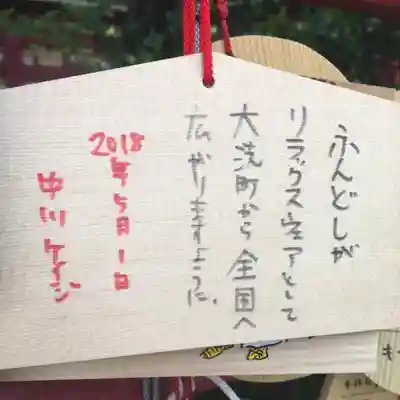 ふんどしが
リラックスウェアとして
大洗町から全国へ
広がりますように。
2018年5月1日
中川ケイジ